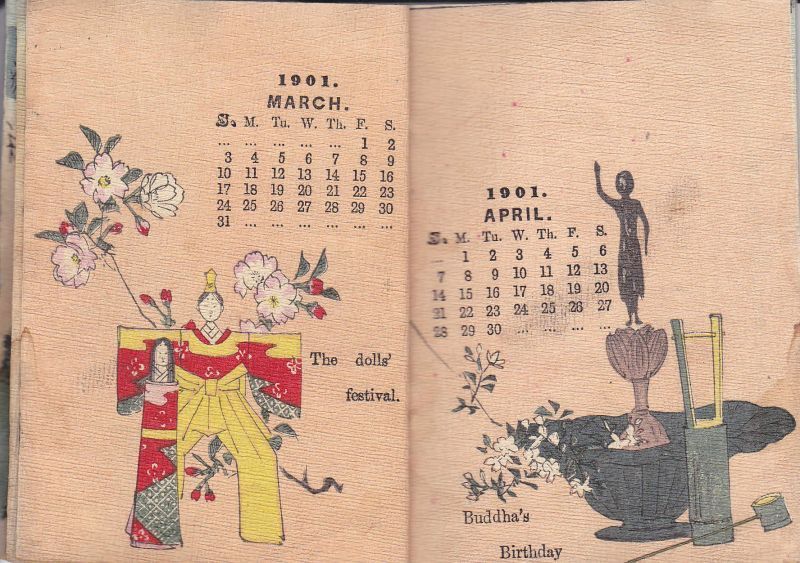 1901.
MARCH.
S. M. Tu. W. Th. F. S.
... ... ... ... ... 1 2
3 4 5 6 7 8 9
10 11 12 13 14 15 16
17 18 19 20 21 22 23
24 25 26 27 28 29 30
31 ... ... ... ... ... ...
The dolls'
festival.
1901.
APRIL.
S. M. Tu. W. Th. F. S.
... 1 2 3 4 5 6
7 8 9 10 11 12 13
14 15 16 17 18 19 20
21 22 23 24 25 26 27
28 29 30 ... ... ... ...
Buddha's
Birthday